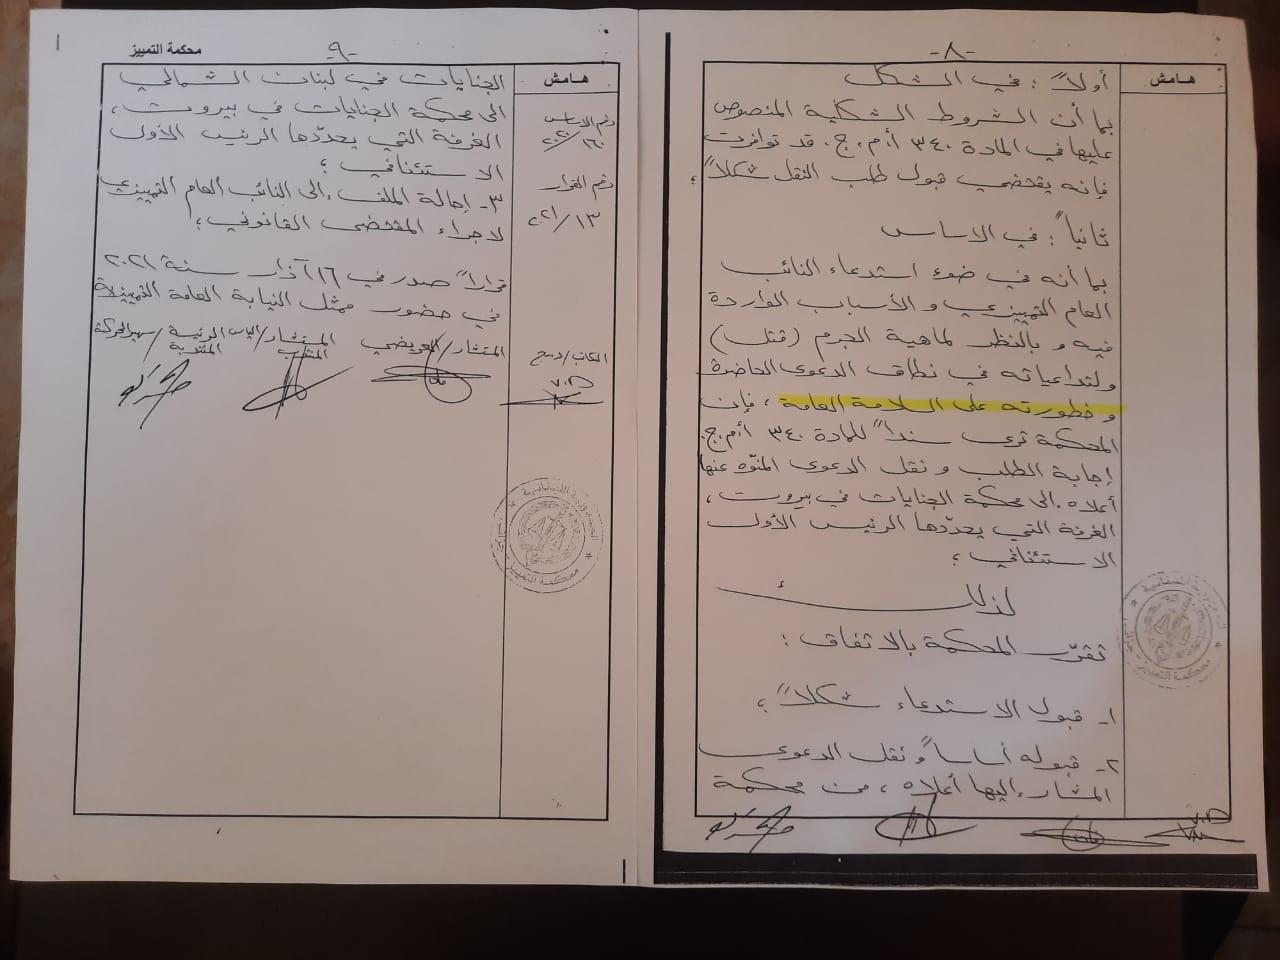 -٨-
هامش
أولاً : في الشكل
بما أن الشروط الشكلية المنصوص
عليها في المادة ٣٤٠ أ.م.ج. قد توافرت
فإنه يقتضي قبول طلب النقل شكلاً ؛
ثانياً : في الاساس
بما أنه في ضوء استدعاء النائب
العام التمييزي و الأسباب الواردة
فيه و بالنظر لماهية الجرم (قتل)
ولتداعياته في نطاق الدعوى الحاضرة
و خطورته على السلامة العامة ، فإن
المحكمة ترى سنداً للمادة ٣٤٠ أ.م.ج.
إجابة الطلب و نقل الدعوى المنوّه عنها
أعلاه إلى محكمة الجنايات في بيروت ،
الغرفة التي يحدّدها الرئيس الأول
الاستئنافي ؛
لذلك
تقرّر المحكمة بالاتفاق :
١- قبول الاستدعاء شكلاً ؛
٢- قبوله أساساً و نقل الدعوى
المشار إليها أعلاه ، من محكمة
محكمة التمييز
-٩-
هامش
رقم الاساس
١٦٠/٢٠٢٠
رقم القرار
١٣/٢٠٢١
الجنايات في لبنان الشمالي
الى محكمة الجنايات في بيروت ،
الغرفة التي يحدّدها الرئيس الأول
الاستئنافي ؛
٣- إحالة الملف إلى النائب العام التمييزي
لاجراء المقتضى القانوني ؛
قراراً صدر في ١٦ آذار سنة ٢٠٢١
في حضور ممثل النيابة العامة التمييزية
الكاتب/ المستشار/العريضي المستشار/الياس الرئيسة/سهير الحركة
المنتدب المنتدبة
محكمة التمييز